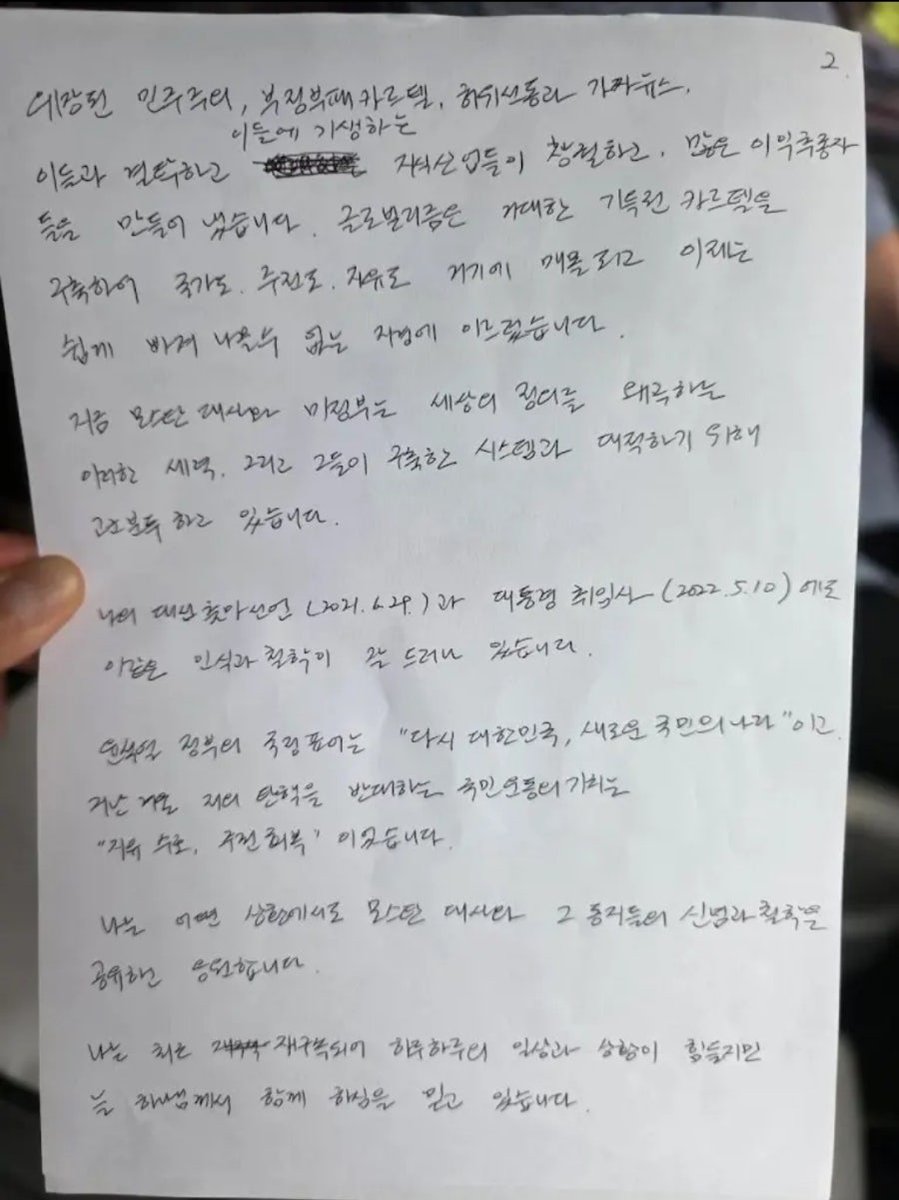 2.
위장된 민주주의, 부정부패 카르텔, 허위선동과 가짜뉴스,
이들에 기생하는
이들과 결탁하고 지식산업들이 창궐하고, 많은 이익추종자
들을 만들어 냈습니다. 글로벌리즘은 거대한 기득권 카르텔을
구축하여 국가도, 주권도, 자유도 거기에 매몰되고 이제는
쉽게 빠져 나올수 없는 지경에 이르렀습니다.
지금 모스탄 대사와 미정부는 세상의 정의를 왜곡하는
이러한 세력, 그리고 그들이 구축한 시스템과 대적하기 위해
고군분투 하고 있습니다.
나의 대선 출마선언(2021.6.29.)과 대통령 취임사(2022.5.10)에도
이같은 인식과 철학이 잘 드러나 있습니다.
윤석열 정부의 국정 표어는 "다시 대한민국, 새로운 국민의 나라"이고
지난 겨울 저의 탄핵을 반대하는 국민운동의 기치는
"자유 수호, 주권 회복" 이었습니다.
나는 어떤 상황에서도 모스탄 대사와 그 동지들의 신념과 철학을
공유하고 응원합니다.
나는 최근 재구속되어 하루하루의 일상과 상황이 힘들지만
늘 하나님께서 함께 하심을 믿고 있습니다.